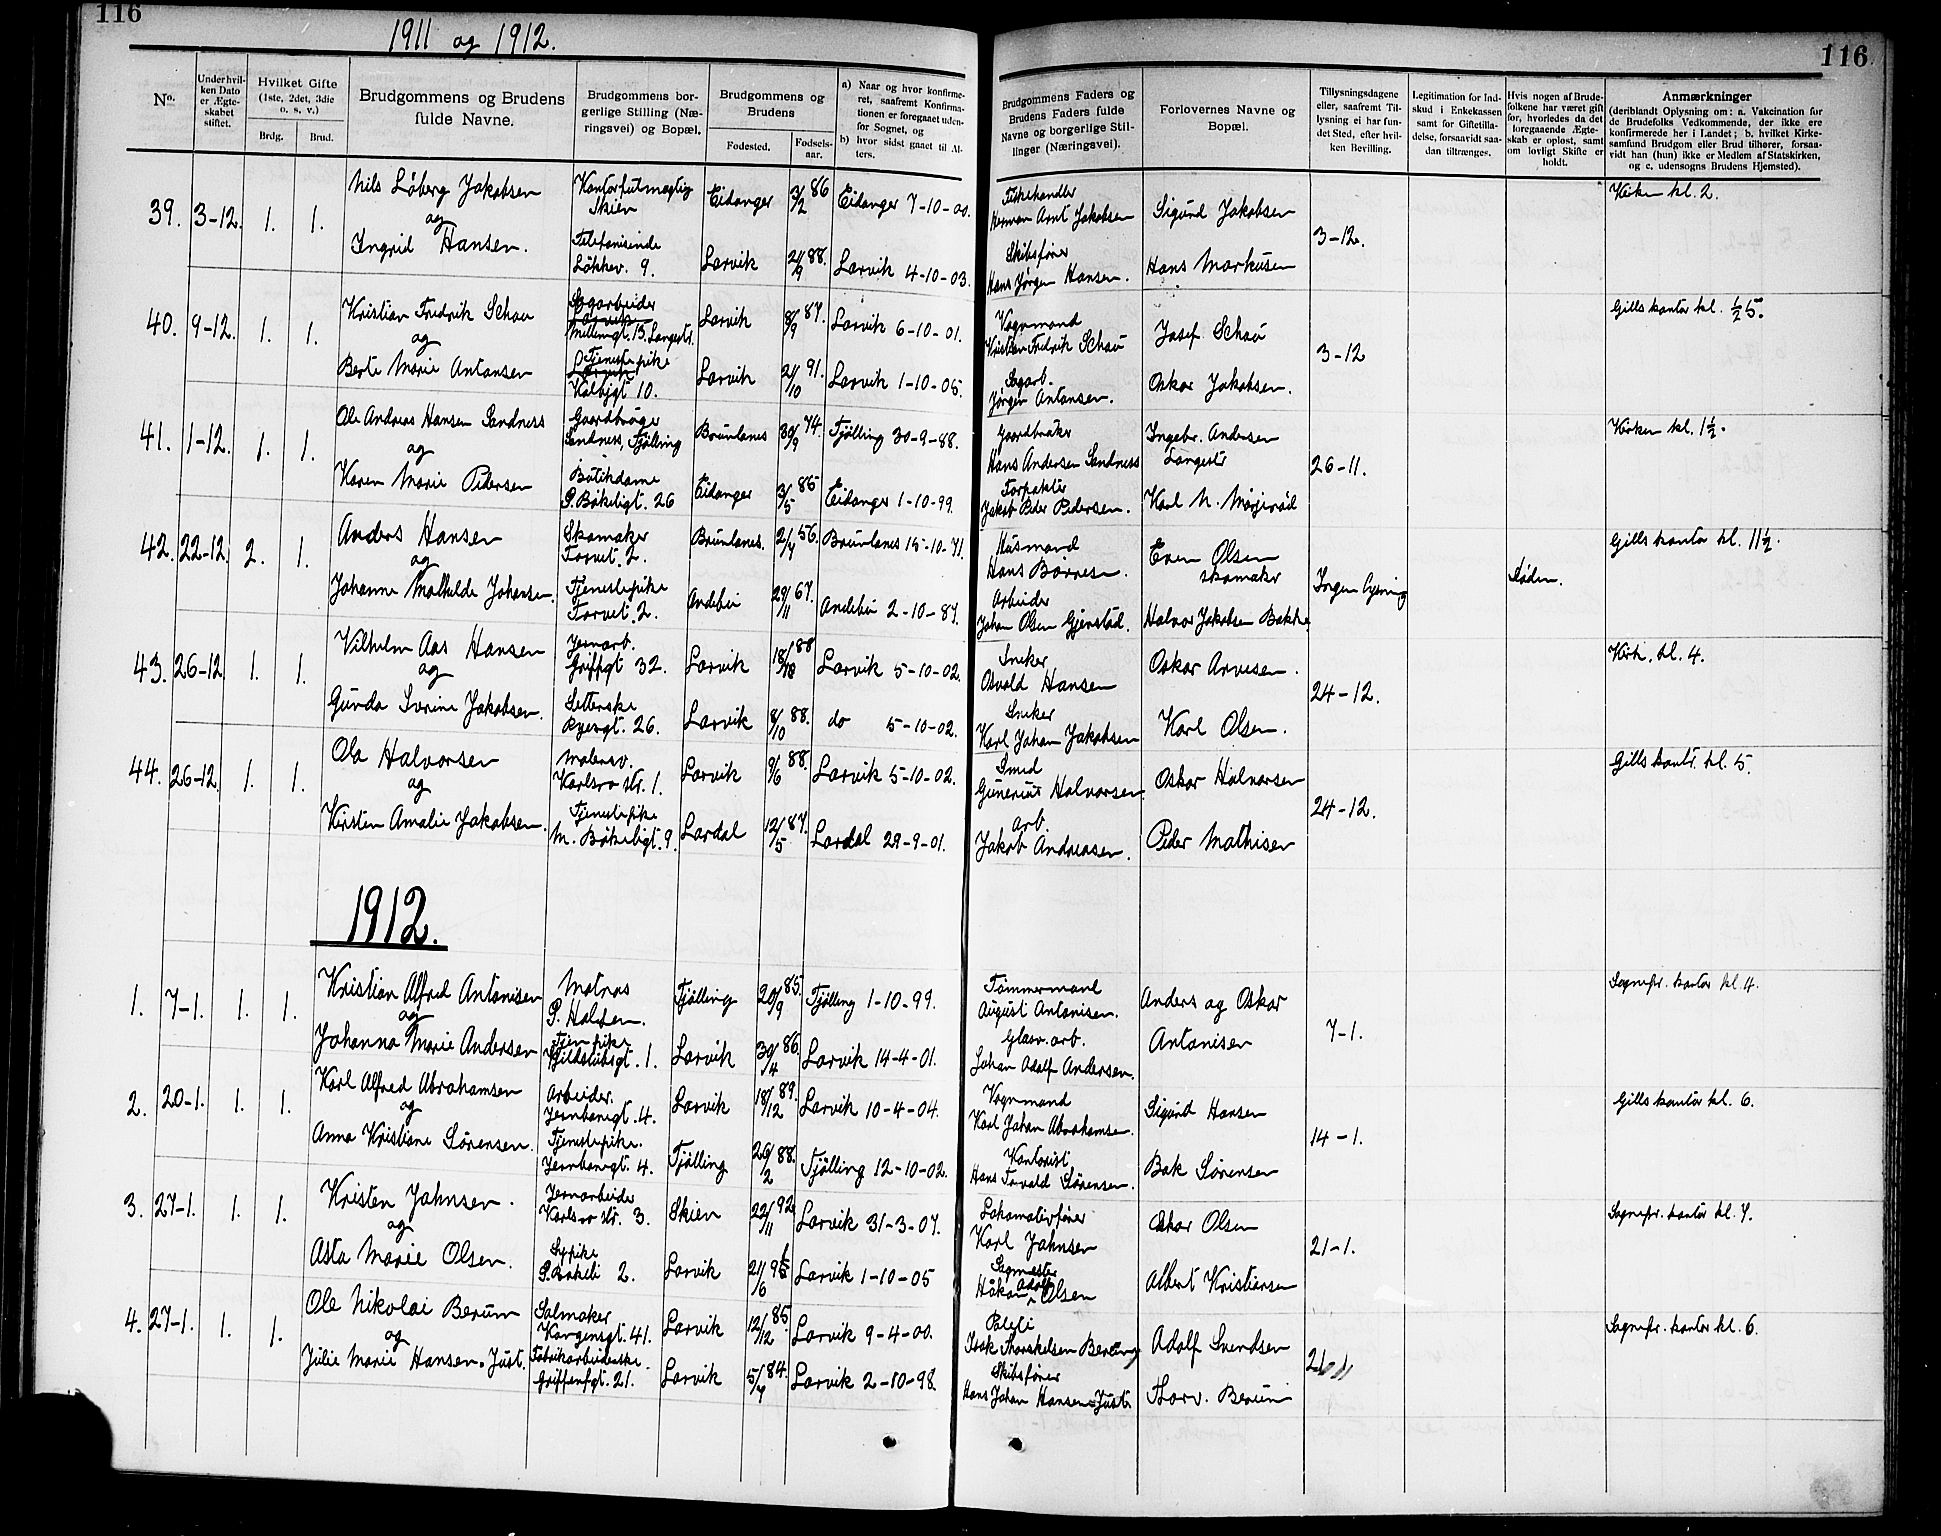 116
1911 og 1912.
116
No.
Under hvilken Dato er Ægteskabet stiftet.
Hvilket Gifte (1ste, 2det, 3die o. s. v.)
Brdg.
Brud.
Brudgommens og Brudens fulde Navne.
Brudgommens borgerlige Stilling (Næringsvei) og Bopæl.
Brudgommens og Brudens
Fødested.
Fødselsaar.
a) Naar og hvor konfirmeret, saafremt Konfirmationen er foregaaet udenfor Sognet, og
b) hvor sidst gaaet til Alters.
Brudgommens Faders og Brudens Faders fulde Navne og borgerlige Stillinger (Næringsvei).
Forlovernes Navne og Bopæl.
Tillysningsdagene eller, saafremt Tillysning ei har fundet Sted, efter hvilken Bevilling.
Legitimation for Indskud i Enkekassen samt for Giftetilladelse, forsaavidt saadan tiltrænges.
Hvis nogen af Brudefolkene har været gift før, hvorledes da det foregaaende Ægteskab er opløst, samt om lovligt Skifte er holdt.
Anmærkninger
(deriblandt Oplysning om: a. Vakcination for de Brudefolks Vedkommende, der ikke ere konfirmerede her i Landet; b. hvilket Kirkesamfund Brudgom eller Brud tilhører, forsaavidt han (hun) ikke er Medlem af Statskirken, og c. udensogns Brudens Hjemsted).
39. 3-12. 1. 1. Nils Löberg Jakobsen Kontorfulmægtig Skien Eidanger 3/2 86 Eidanger 7-10-00. Fiskehandler Herman Arnt Jakobsen Sigurd Jakobsen 3-12. Kirken kl. 2.
og
Ingrid Hansen. Telefonistinde Løkkev. 9. Larvik 21/9 88. Larvik 4-10-03. Skibsfører Hans Jørgen Hansen. Hans Markusen
40. 9-12. 1. 1. Kristian Fredrik Schau Sagarbeider Larvik Møllengt. 13. Langestr. Larvik 8/9 87. Larvik 6-10-01. Vognmand Kristian Fredrik Schau Josef Schau 3-12 Gills kontor kl. ½5.
og
Berte Marie Antonsen Tjenestepike Larvik Kalvjgt 10. Larvik 21/10 91. Larvik 1-10-05. Sagarb. Jørgen Antonsen. Oskar Jakobsen.
41. 1-12. 1. 1. Ole Andreas Hansen Sandness Gaardbruger Sandness, Tjølling Brunlanes 30/9 74. Tjølling 30-9-88. Gaardbruker Hans Andersen Sandness Ingebr. Andersen Langestr 26-11. Kirken kl. 1½.
og
Karen Marie Pedersen Butikdame P. Bøkeligt. 26 Eidanger 3/5 85 Eidanger 1-10-99. Forpakter Jakob Peder Pedersen. Karl M.
42. 22-12. 2. 1. Anders Hansen Skomaker Torvet. 2. Brunlanes. 2/7 56. Brunlanes 15-10-71. Husmand Hans Børresen. Even Olsen skomaker Ingen lysning Døden. Gills kontor kl. 11½.
og
Johanne Mathilde Johansen. Tjenestepike Torvet. 2. Andebu 29/11 67. Andebu 2-10-87. Arbeider Johan Olsen Gjerstad. Halvor Jakobsen Bakke
43. 26-12 1. 1. Vilhelm Aas Hansen Jernarb. Griffgt 32. Larvik 88 Larvik 5-10-02. Snekker Osvald Hansen Oskar Arvesen. 24-12. Kirk. kl. 4.
og
Gunda Severine Jakobsen. Setterske Ryesgt. 26. Larvik 8/10 88. do 5-10-02. Sneker Karl Johan Jakobsen Karl Olsen.
44. 26-12. 1. 1. Ole Halvorsen Malersv. Karlsro str. 1. Larvik 9/6 88. Larvik 5-10-02. Smed Gunerius Halvorsen Oskar Halvorsen 24-12. Gills kontr. kl. 5.
og
Kirsten Amalie Jakobsen. Tjenestepike M. Bøkeligt. 9. Lardal 12/5 87. Lardal 29-9-01. Arb. Jakob Andreasen. Peder Mathisen
1912.
1. 7-1. 1. 1. Kristian Alfred Antonisen Matros P. Halsen. Tjølling 20/9 85. Tjølling 1-10-99. Tømmermand August Antonisen. Anders og Oskar Antonisen 7-1. Sognepr. kontor kl. 4.
og
Johanna Marie Andersen Tjen. pike 1. Larvik 30/4 86. Larvik 14-4-01. Glasv. arb. Johan Adolf Andersen.
2. 20-1. 1. 1. Karl Alfred Abrahamsen Arbeider. Jernbanegt. 4. Larvik 18/12 89. Larvik 10-4-04. Vognmand Karl Johan Abrahamsen. Sigurd Hansen 14-1. Gills kontor kl. 6.
og
Anna Kristiane Sörensen. Tjenestepike. Jernbanegt. 4. Tjølling 26/2 88. Tjølling 12-10-02. Kontorist Hans Torvald Sørensen. Bak Sørensen
3. 27-1. 1. 1. Kristen Johnsen. Jernarbeider Karlsro str. 3. Skien 22/11 92. Larvik 31-3-07. Lokomotivfører Karl Johnsen Oskar Olsen 21-1. Sognepr. kontor kl. 7.
og
Asta Marie Olsen. Sypike P. Bøkeli 2. Larvik 21/6 Larvik 1-10-05 Sagmester Håkon Adolf Olsen Albert Kristiansen
4. 27-1. 1. 1. Ole Nikolai Berum Salmaker Kongensgt. 41. Larvik 12/12 85. Larvik 9-4-00. Politi Isak Thorkelsen Berum Adolf Svendsen 21-1 Sognepr. kontor kl. 6.
og
Julie Marie Hansen-Just. Fabrikarbeiderske. Griffenfgt. 21. Larvik 5/7 84. Larvik 2-10-98. Skibsfører Hans Johan Hansen-Just. Thorv. Berum